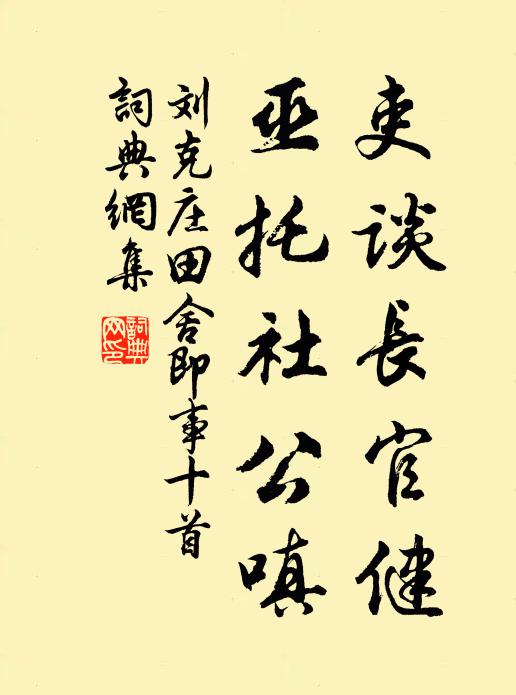 吏談長官健
巫托社公嗔
刘克庄田舍即事十首
詞典網集
詞典網印